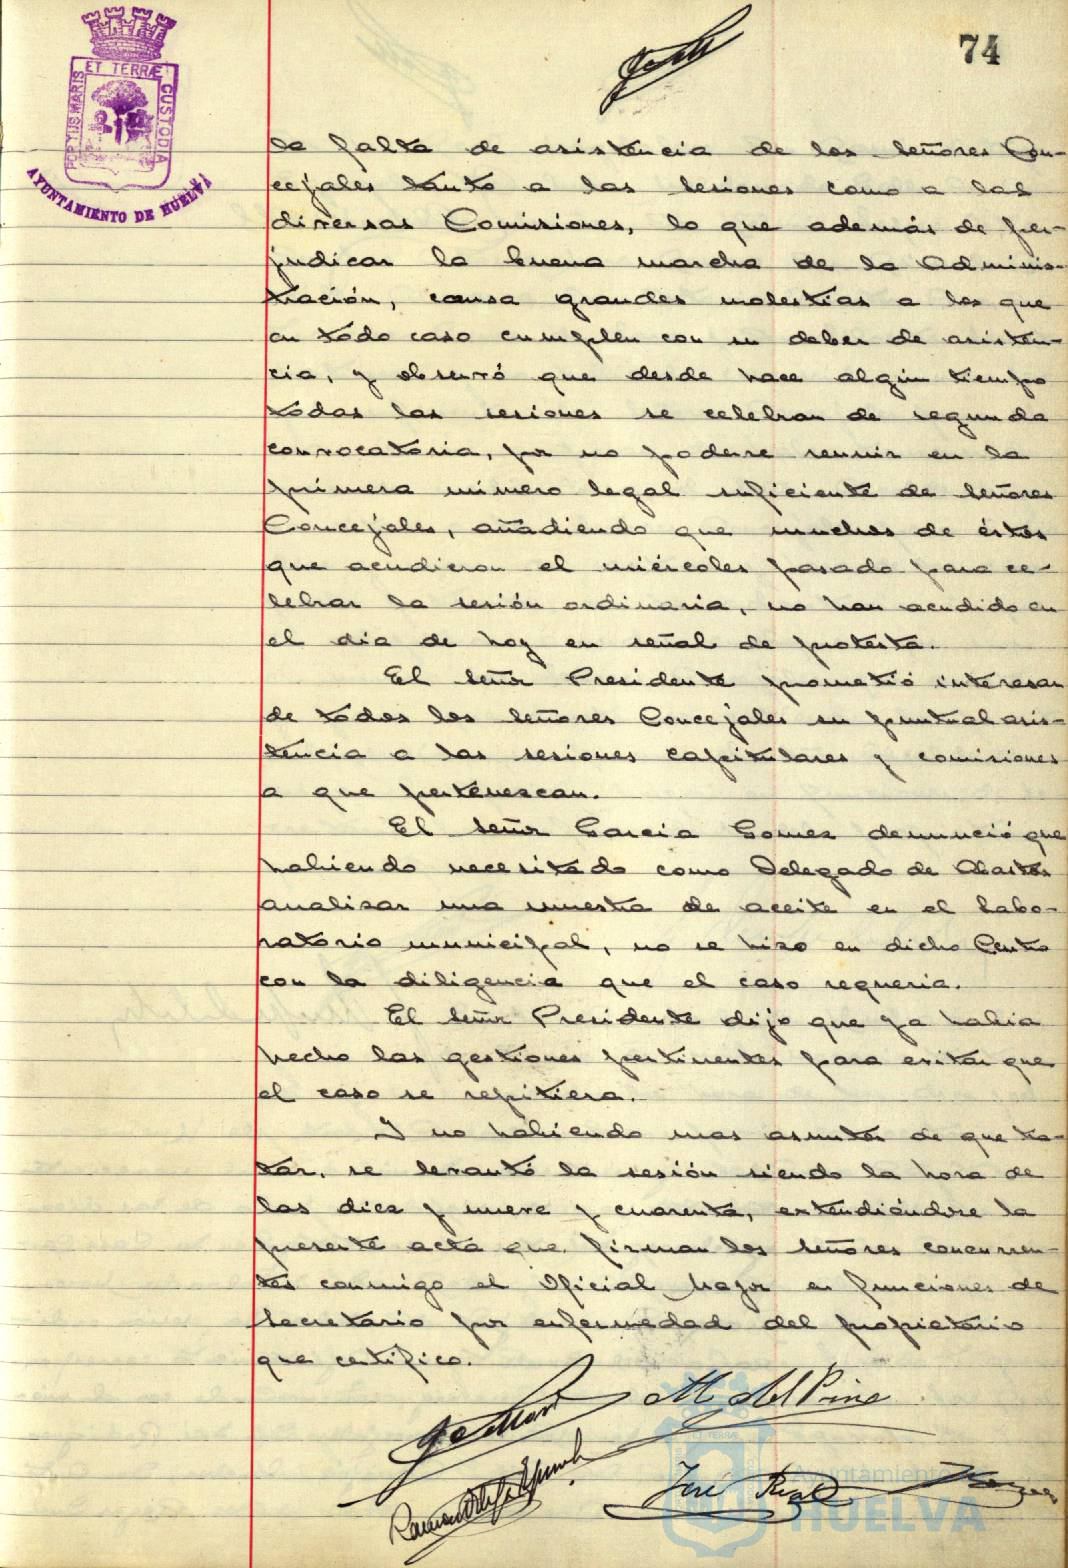 74
ET TERRÆ
PORTUS MARIS
CUSTODIA
AYUNTAMIENTO DE HUELVA
la falta de asistencia de los señores Con-
cejales tanto a las sesiones como a las
diversas Comisiones, lo que además de per-
judicar la buena marcha de la Adminis-
tración, causa grandes molestias a los que
en todo caso cumplen con su deber de asisten-
cia, y observó que desde hace algún tiempo
todas las sesiones se celebran de segunda
convocatoria, por no poderse reunir en la
primera número legal suficiente de señores
Concejales, añadiendo que muchos de éstos
que acudieron el miércoles pasado para ce-
lebrar la sesión ordinaria, no han acudido en
el día de hoy en señal de protesta.
El señor Presidente prometió interesar
de todos los señores Concejales su puntual asis-
tencia a las sesiones capitulares y comisiones
a que pertenezcan.
El señor García Gomez denunció que
habiendo necesitado como Delegado de Abastos
analizar una muestra de aceite en el Labo-
ratorio municipal, no se hizo en dicho Centro
con la diligencia que el caso requeria.
El señor Presidente dijo que ya habia
hecho las gestiones pertinentes para evitar que
el caso se repitiera.
Y no habiendo mas asuntos de que tra-
tar, se levantó la sesión siendo la hora de
las diez y nueve y cuarenta, extendiéndose la
presente acta que firman los señores concurren-
tes conmigo el Oficial Mayor en funciones de
Secretario por enfermedad del propietario
que certifico.
M. del Pino
José Real
Ayuntamiento
HUELVA